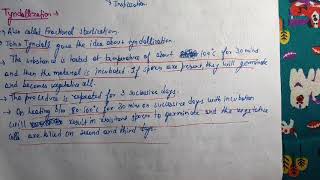 Indication
Tyndallization →
→ Also called Fractional sterilization.
→ John Tyndall gave the idea about tyndallization.
→ The substance is heated at temperature of about 100°C for 30 mins
and then the material is incubated. If spores are present, they will germinate
and becomes vegetative cell.
→ The procedure is repeated for 3 successive days.
→ On heating 80-100°C for 20 mins on successive days with incubation
will result in resistant spores to germinate and the vegetative
cells are killed on second and third days.